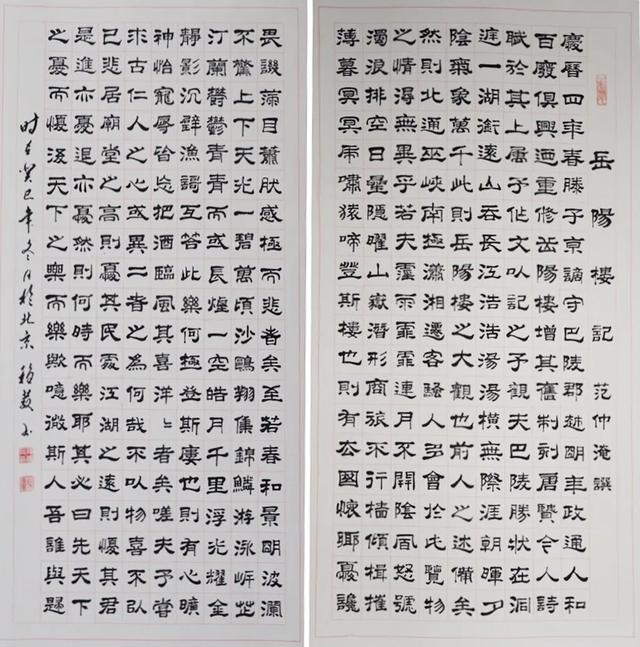 岳陽樓記 范仲淹撰
慶曆四年春滕子京謫守巴陵郡越明年政通人和
百廢俱興迺重修岳陽樓增其舊制刻唐賢今人詩
賦於其上属予作文以記之予觀夫巴陵勝狀在洞
庭一湖銜遠山吞長江浩浩湯湯橫無際涯朝暉夕
陰氣象萬千此則岳陽樓之大觀也前人之述備矣
然則北通巫峽南極瀟湘遷客騷人多會於此覽物
之情得無異乎若夫霪雨霏霏連月不開陰風怒號
濁浪排空日星隱曜山嶽潛形商旅不行檣傾楫摧
薄暮冥冥虎嘯猿啼登斯樓也則有去國懷鄉憂讒
畏譏滿目蕭然感極而悲者矣至若春和景明波瀾
不驚上下天光一碧萬頃沙鷗翔集錦鱗游泳岸芷
汀蘭鬱鬱青青而或長煙一空皓月千里浮光耀金
靜影沉璧漁謌互答此樂何極登斯樓也則有心曠
神怡寵辱皆忘把酒臨風其喜洋〻者矣嗟夫予嘗
求古仁人之心或異二者之為何哉不以物喜不以
己悲居廟堂之高則憂其民處江湖之遠則憂其君
是進亦憂退亦憂然則何時而樂耶其必曰先天下
之憂而憂後天下之樂而樂歟噫微斯人吾誰與歸
时在癸巳年冬月於北京